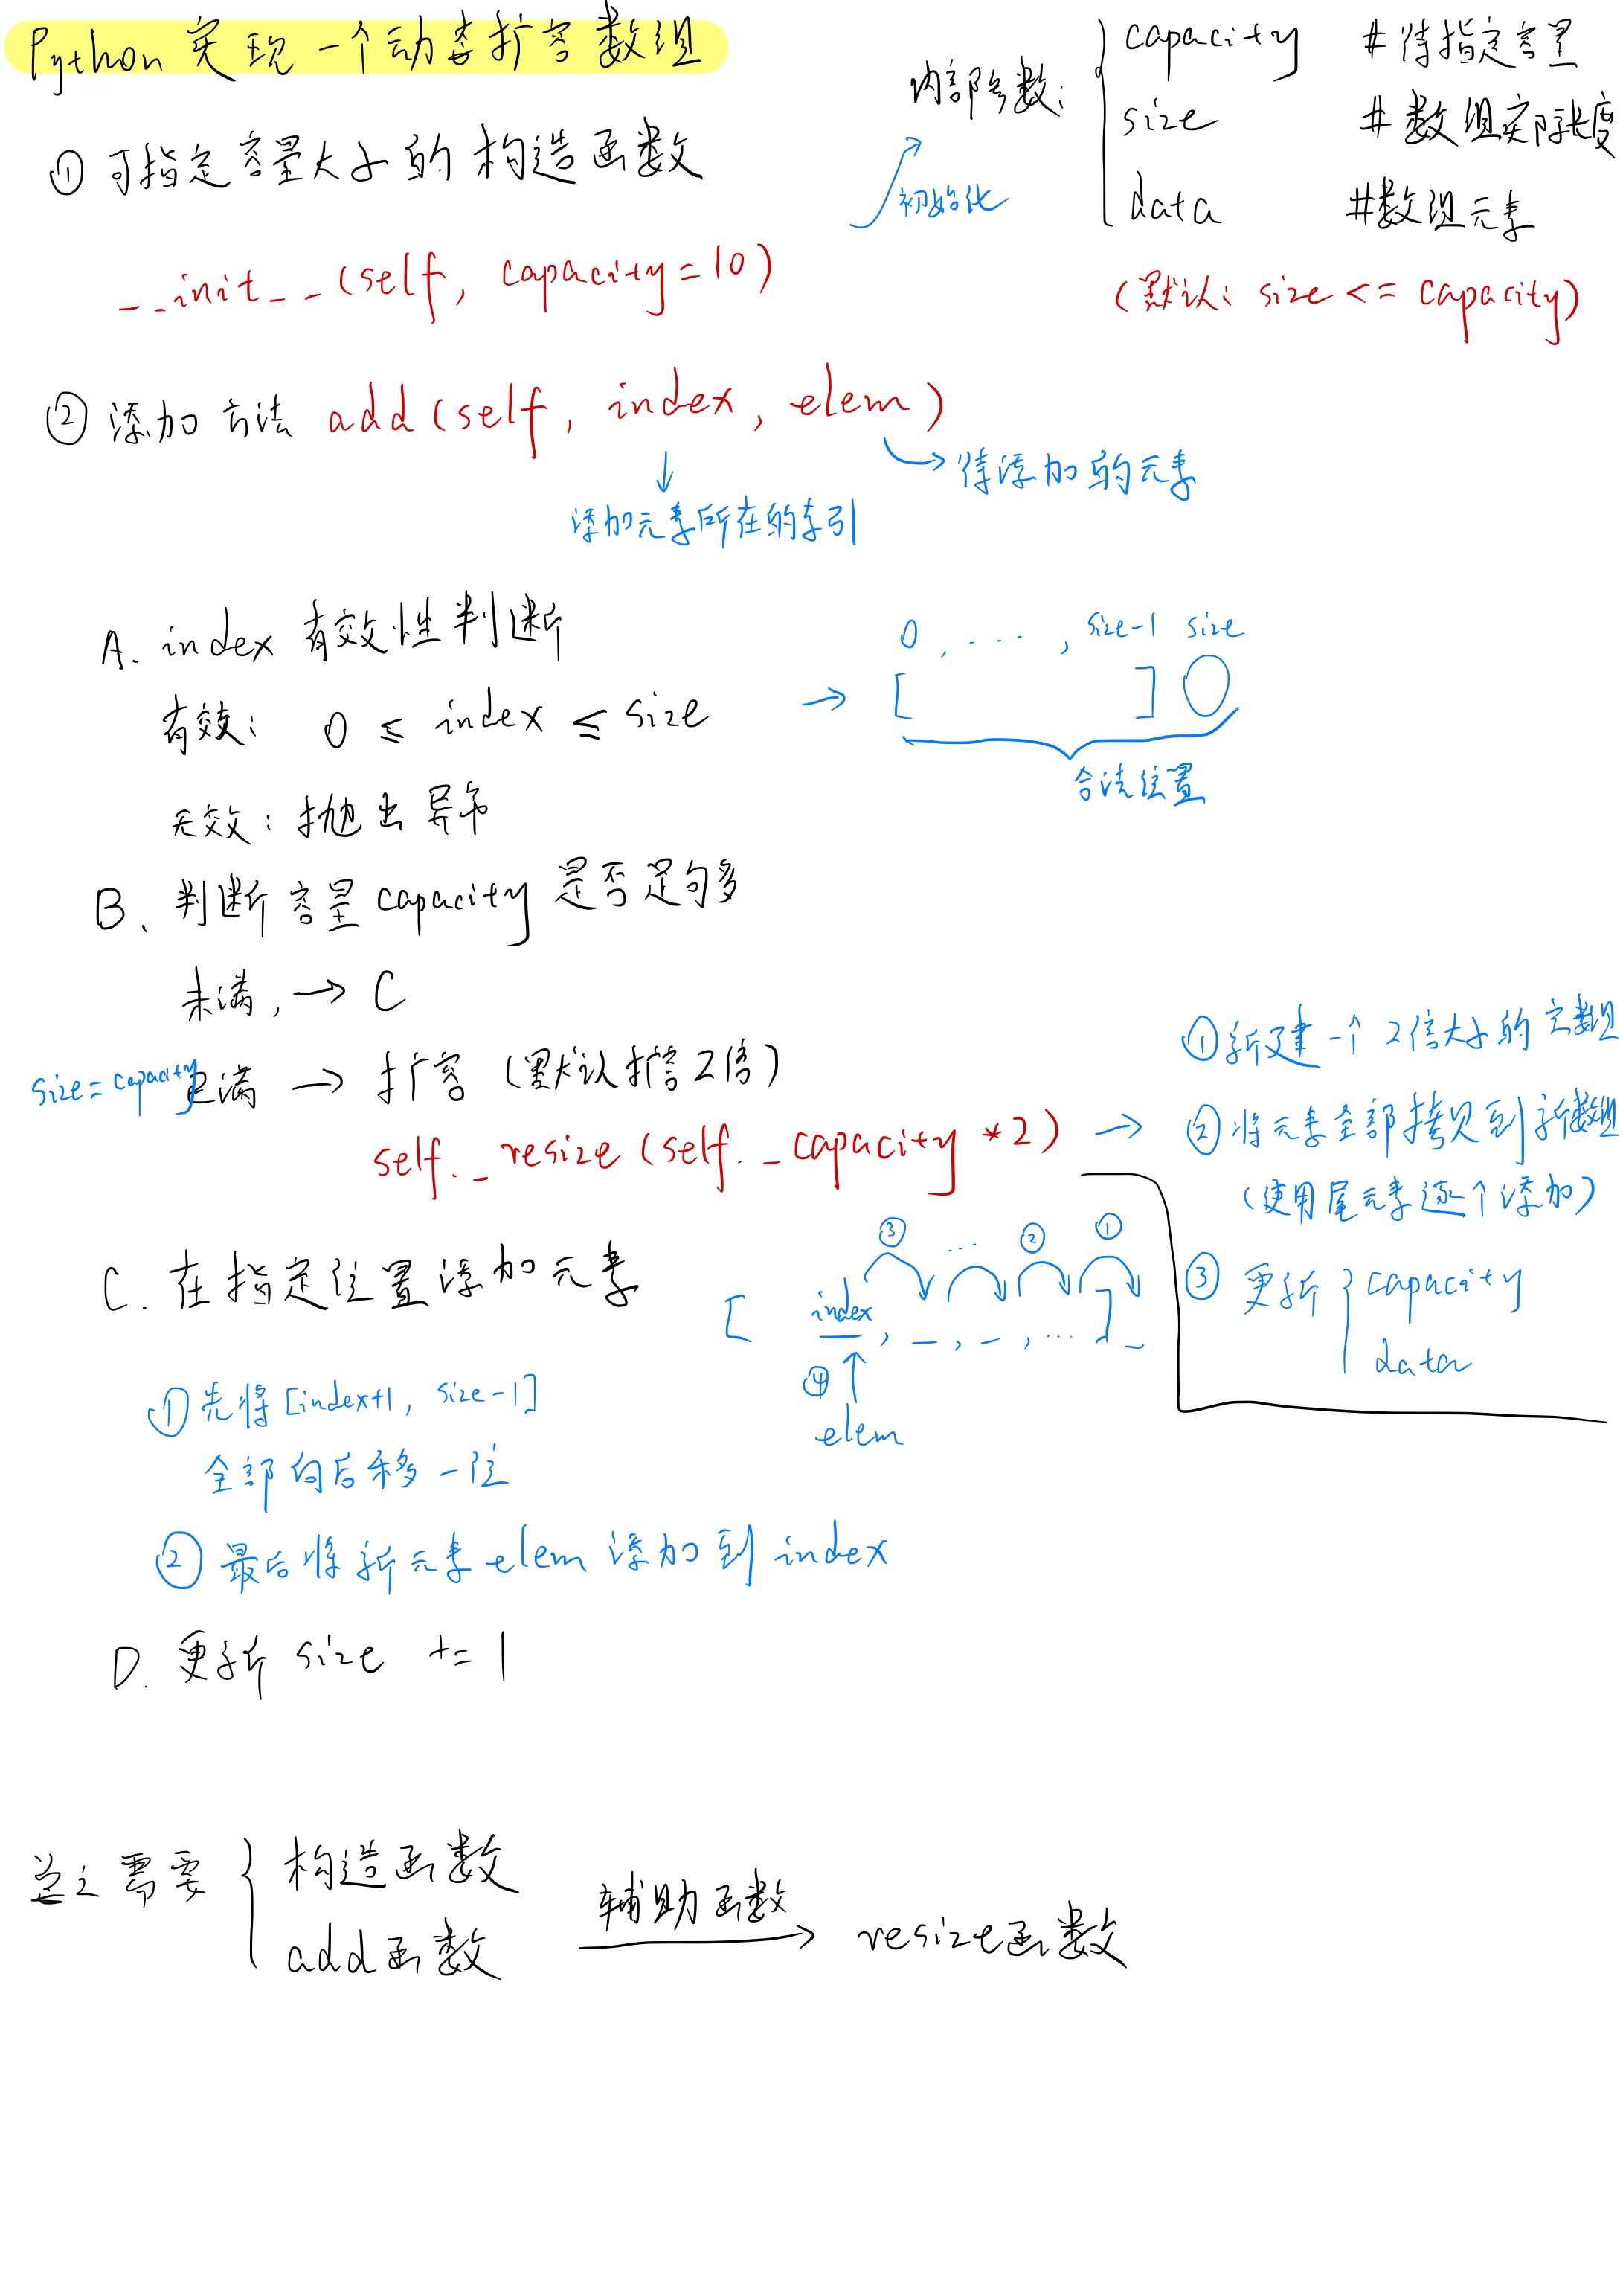 Python 实现一个动态扩容数组
① 可指定容量大小的构造函数
__init__(self, capacity=10)
初始化
内部参数:
capacity #待指定容量
size #数组实际长度
data #数组元素
(默认: size <= capacity)
② 添加方法 add(self, index, elem)
待添加的元素
添加元素所在的索引
A. index 有效性判断
有效: 0 ≤ index ≤ size
→
0, ..., size-1 size
[ ]
合法位置
无效: 抛出异常
B、判断容量capacity是否足够多
未满, → C
size=capacity 已满 → 扩容 (默认扩容2倍)
self._resize(self._capacity *2) →
① 新建一个2倍大小的空数组
② 将元素全部拷贝到新数组
(使用尾元素逐个添加)
③ 更新 capacity
data
C. 在指定位置添加元素
③ ... ② ①
[ index, _, _, ... ] _
④ ↑
elem
① 先将[index+1, size-1]
全部向后移一位
② 最后将新元素elem添加到index
D. 更新 size += 1
总之需要
构造函数
add函数
辅助函数
resize函数